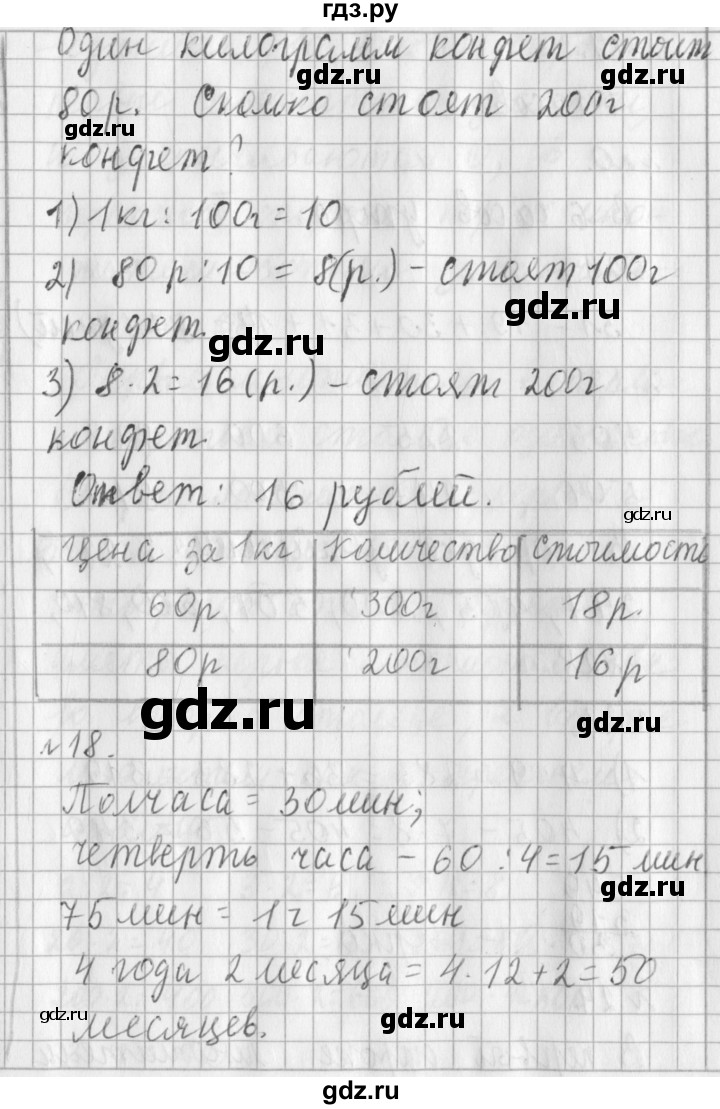 гдз.ру
Один килограмм конфет стоит
gdz.ru gdz.ru
80р. Сколько стоят 200г
gdz.ru
конфет?
1) 1кг : 100г = 10
2) 80р : 10 = 8(р.) - стоят 100г
gdz.ru
конфет.
gdz.ru
3) 8 · 2 = 16(р.) - стоят 200г
gdz.ru
конфет.
Ответ: 16 рублей.
gdz.ru
Цена за 1кг Количество Стоимость
60р 300г 18р.
80р 200г 16р
gdz.ru
gdz.ru
№18.
Полчаса = 30мин;
четверть часа - 60 : 4 = 15 мин
gdz.ru
75мин = 1ч 15мин
4 года 2 месяца = 4 · 12 + 2 = 50
gdz.ru
месяцев.
gdz.ru
gdz.ru